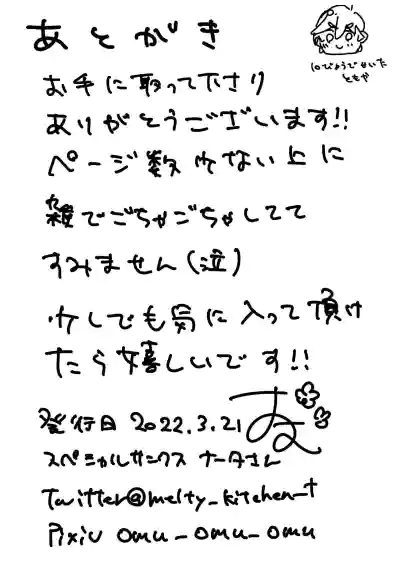 あとがき
10びょうでかいた
ともや
お手に取って下さり
ありがとうございます!!
ページ数少ない上に
雑でごちゃごちゃしてて
すみません(泣)
少しでも気に入って頂け
たら嬉しいです!!
発行日 2022.3.21
スペシャルサンクス ナータさん
Twitter@melty_kitchen_t
Pixiv omu_omu_omu